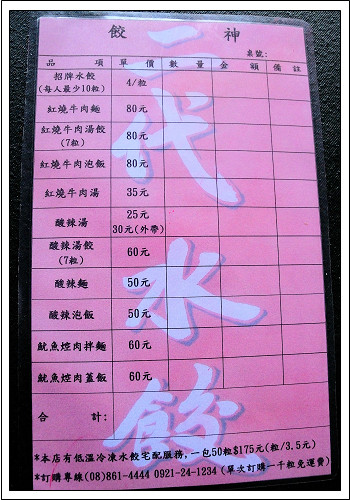 餃 神
二代水餃
桌號:
品 項 單 價 數 量 金 額 備 註
招牌水餃
(每人最少10粒) 4/粒
紅燒牛肉麵 80元
紅燒牛肉湯餃
(7粒) 80元
紅燒牛肉泡飯 80元
紅燒牛肉湯 35元
酸辣湯 25元
30元(外帶)
酸辣湯餃
(7粒) 60元
酸辣麵 50元
酸辣泡飯 50元
魷魚焢肉拌麵 60元
魷魚焢肉蓋飯 60元
合 計:
*本店有低溫冷凍水餃宅配服務,一包50粒$175元(粒/3.5元)
*訂購專線(08)861-4444 0921-24-1234 (單次訂購一千粒免運費)